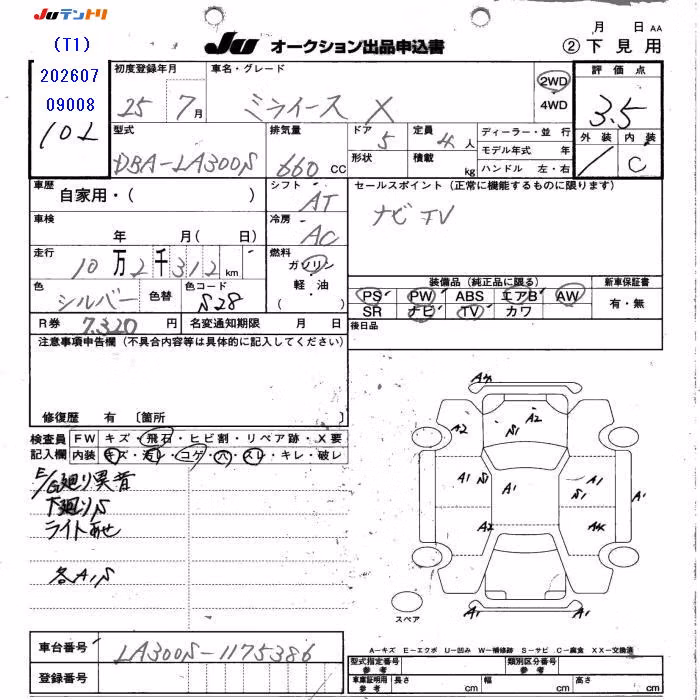 Juテントリ
(T1)
202607
09008
10L
Ju オークション出品申込書
月 日 AA
② 下見用
初度登録年月
25 7月
車名・グレード
ミライース X
2WD
4WD
評価点
3.5
外装 内装
/ C
型式
DBA-LA300S
排気量
660 CC
ドア 5
形状
定員 4人
積載 kg
ディーラー・並行
モデル年式 年
ハンドル 左・右
車歴
自家用・( )
シフト AT
セールスポイント (正常に機能するものに限ります)
ナビ TV
車検
年 月( 日)
冷房 AC
走行
10万2千312km
燃料
ガソリン
軽油
( )
色 シルバー
色替
色コード S28
装備品 (純正品に限る)
新車保証書
PS PW ABS エアB AW
SR ナビ TV カワ
有・無
R券 7,320 円
名変通知期限 月 日
後日品
注意事項申告欄 (不具合内容等は具体的に記入してください)
修復歴 有 〔箇所 〕
検査員
記入欄
FW キズ・飛石・ヒビ割・リペア跡・X要
内装 キズ・汚レ・コゲ・穴・スレ・キレ・破レ
E/G廻り異音
下廻りS
ライトあせ
各A1,S
A2 S1 A2
A1 S1 A1 A1 S1 A1
A2
A1 A1
スペア
A-キズ E-エクボ U-凹み W-補修跡 S-サビ C-腐食 XX-交換済
車台番号 LA300S-1175386
登録番号
型式指定番号
参考
類別区分番号
参考
車庫証明用
参考
長さ cm 幅 cm 高さ cm